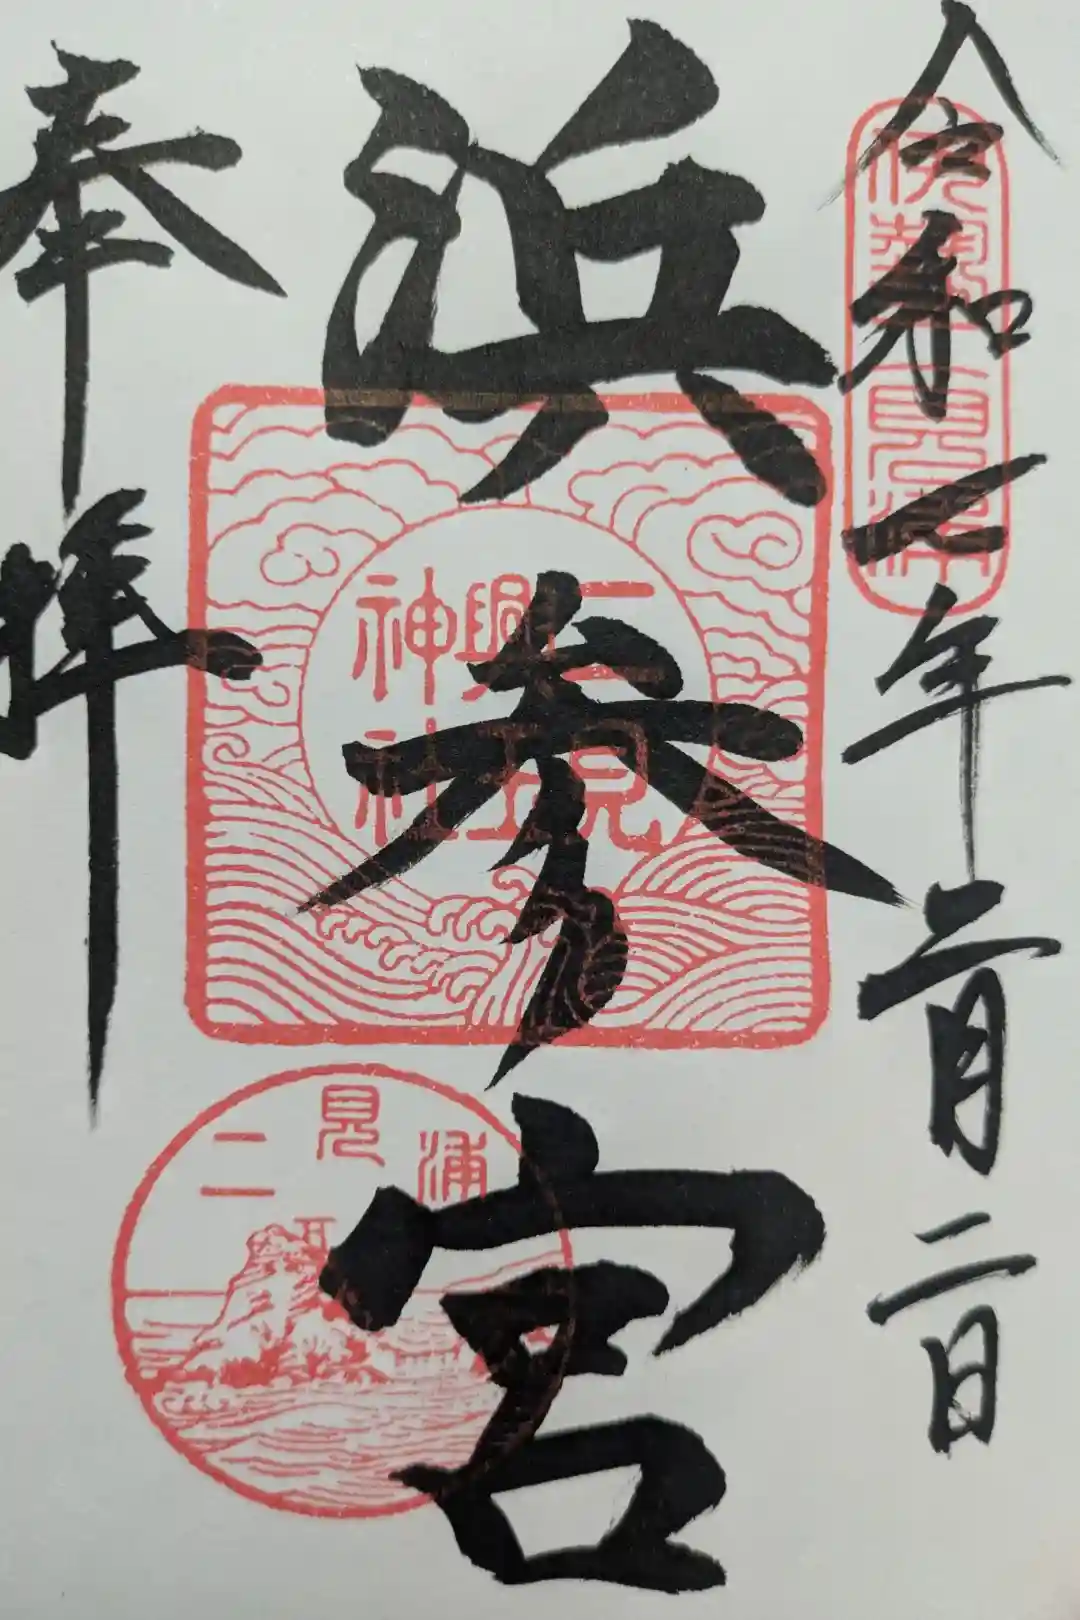 令和七年二月二日
伊勢二見浦
浜参宮
二見
興玉
神社
二見浦
奉拝